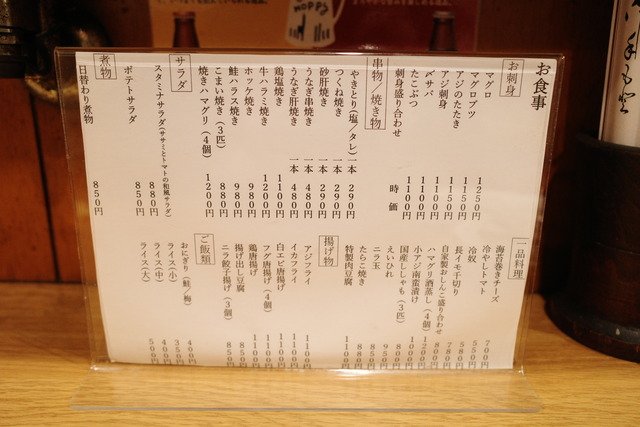 HOPPY
お食事
お刺身
マグロ 1250円
マグロブツ 1150円
アジのたたき 1150円
アジ刺身 1100円
〆サバ 1100円
たこぶつ 1100円
刺身盛り合わせ 時価
串物／焼き物
やきとり（塩／タレ） 一本 290円
つくね焼き 一本 480円
砂肝焼き 一本 290円
うなぎ串焼き 一本 480円
うなぎ肝焼き 一本 480円
鶏塩焼き 1100円
牛ハラミ焼き 1200円
ホッケ焼き 980円
鮭ハラス焼き 980円
こまい焼き（3匹） 880円
焼きハマグリ（4個） 1200円
サラダ
スタミナサラダ（ササミとトマトの和風サラダ） 880円
ポテトサラダ 850円
煮物
日替わり煮物 850円
一品料理
海苔巻きチーズ 700円
冷やしトマト 550円
冷奴 580円
長イモ千切り 780円
自家製おしんこ盛り合わせ 800円
ハマグリ酒蒸し（4個） 1200円
小アジ南蛮漬け 1000円
国産ししゃも（3匹） 800円
えいひれ 950円
ニラ玉 850円
たらこ焼き 880円
特製肉豆腐 1100円
揚げ物
アジフライ 1100円
イカフライ 1100円
白エビ唐揚げ 1100円
フグ唐揚げ（4個） 1100円
鶏唐揚げ 1100円
揚げ出し豆腐 850円
ニラ餃子揚げ（3個） 850円
ご飯類
おにぎり（鮭／梅） 400円
ライス（小） 350円
ライス（中） 400円
ライス（大） 500円